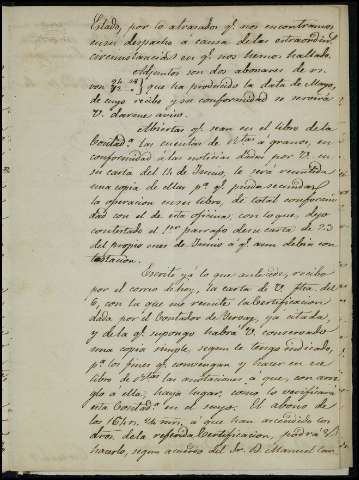 Estado, por lo atrasados q.e nos encontramos
en su despacho a causa de las extraordin.s
circunstancias en q.e nos hemos hallado.
Adjuntos son dos abonares de r.s
von que ha producido la data de Mayo,
de cuyo recibo y su conformidad se servirá
V. darme aviso.
Abiertas q.e sean en el libro de la
Contad.a las cuentas de a granos, en
conformidad á las noticias dadas por V. en
su carta del 14 de Junio, le será remitida
una copia de ellas p.a q.e pueda secundar
la operacion en su libro, de total conformi
dad con el de esta oficina, con lo que, dejo
contestado el 1.er parrafo de su carta de 23
del propio mes de Junio á q.e aun debia con
testacion.
Escrito ya lo que antecede, recibo
por el correo de hoy, la carta de V. fha. del
6, con la que me remite la Certificacion
dada por el Contador de ya citada,
y de la q.e supongo habrá V. conservado
una copia simple, segun le tengo indicado,
p.a los fines q.e convengan y hacer en su
libro de las anotaciones a que, con arre
glo a ella, haya lugar, como lo verificará
esta Contad.a en el suyo. El abono de
los r.s mrs, a que han ascendido los
dros. de la referida Certificacion, podrá V.
hacerlo, segun acuerdo del Sr. D. Manuel